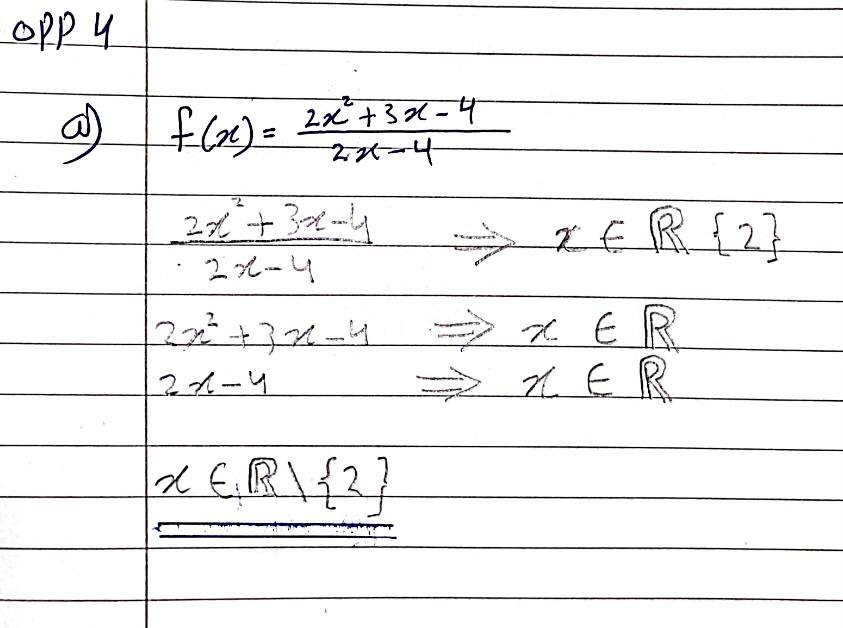 OPP 4
a) f(x) = (2x² + 3x - 4)/(2x - 4)
(2x² + 3x - 4)/(2x - 4) ⇒ x ∈ ℝ {2}
2x² + 3x - 4 ⇒ x ∈ ℝ
2x - 4 ⇒ x ∈ ℝ
x ∈ ℝ \ {2}